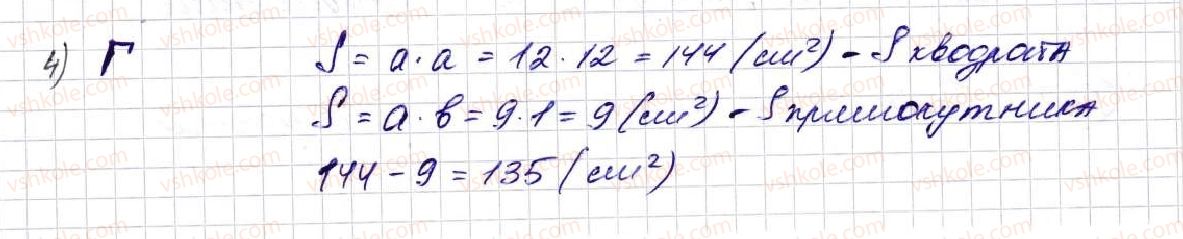 4) Г S = a · a = 12 · 12 = 144 (см²) - S квадрата
S = a · в = 9 · 1 = 9 (см²) - S прямокутника
144 - 9 = 135 (см²)